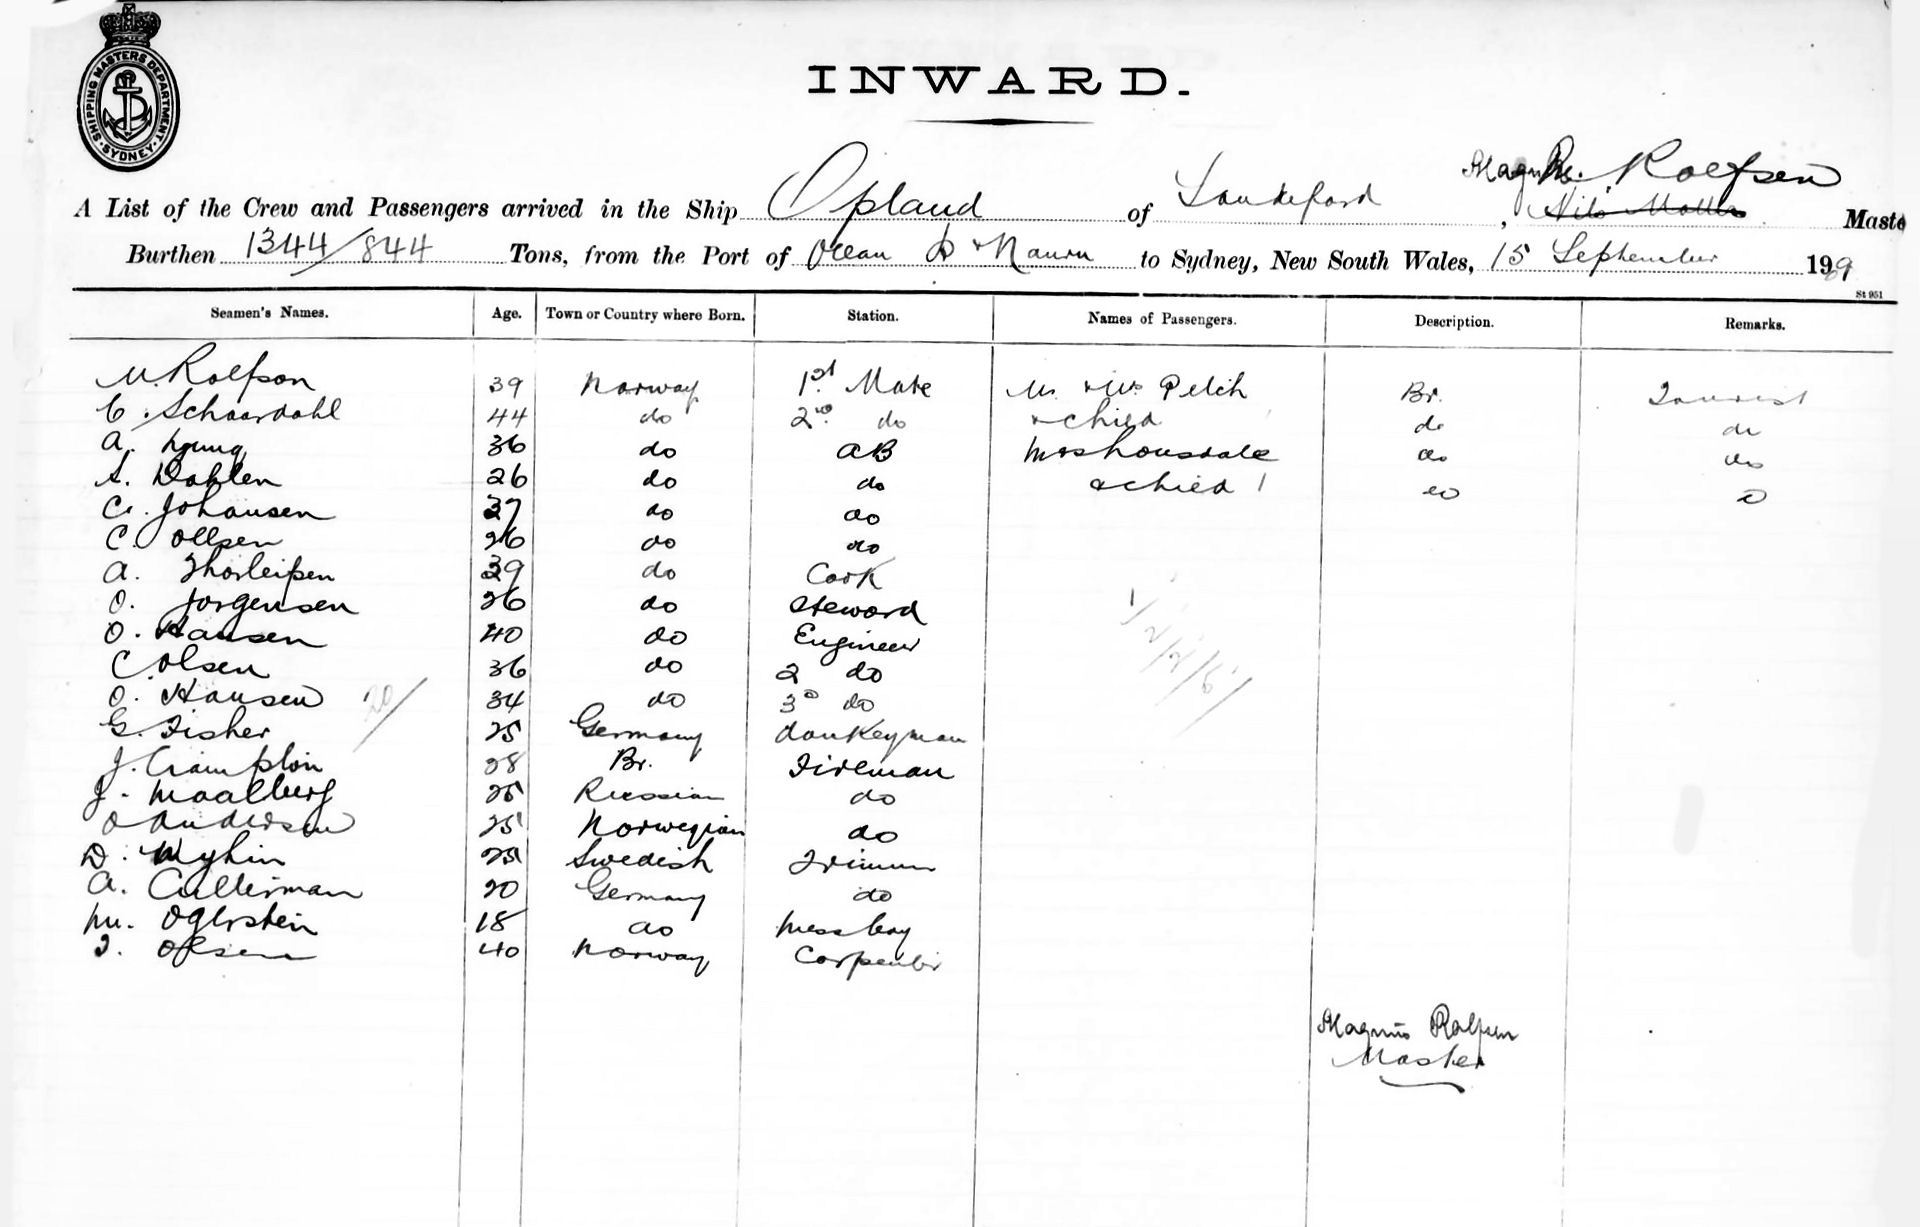 SHIPPING MASTERS DEPARTMENT
SYDNEY
INWARD.
A List of the Crew and Passengers arrived in the Ship Opland of , Magnus Rolfsen Maste
Burthen 1344/844 Tons, from the Port of Ocean & Nauru to Sydney, New South Wales, 15 September 1909
St 951
Seamen's Names. Age. Town or Country where Born. Station. Names of Passengers. Description. Remarks.
M. Rolfson 39 Norway 1st Mate Mr & Mrs Petch Br. Tourist
C. Schaardahl 44 do 2nd do & child do do
A. 36 do AB do do
S. Dahlen 26 do do & child 1 do do
C. Johansen 37 do do
C. Ollsen 26 do do
A. Thorleifsen 39 do Cook
O. Jorgensen 26 do Steward
O. Hansen 40 do Engineer
C Olsen 36 do 2 do
O. Hansen 34 do 3d do
20/
G. Fisher 25 Germany donkeyman
J. Crampton 28 Br. Fireman
J. Maalberg 25 Russian do
O Andersen 25 Norwegian do
D. 25 Swedish Trimmer
A. Cullerman 20 Germany do
M. Ogerstein 18 do Messboy
J. Olsen 40 Norway Carpenter
Magnus Rolfsen
Master